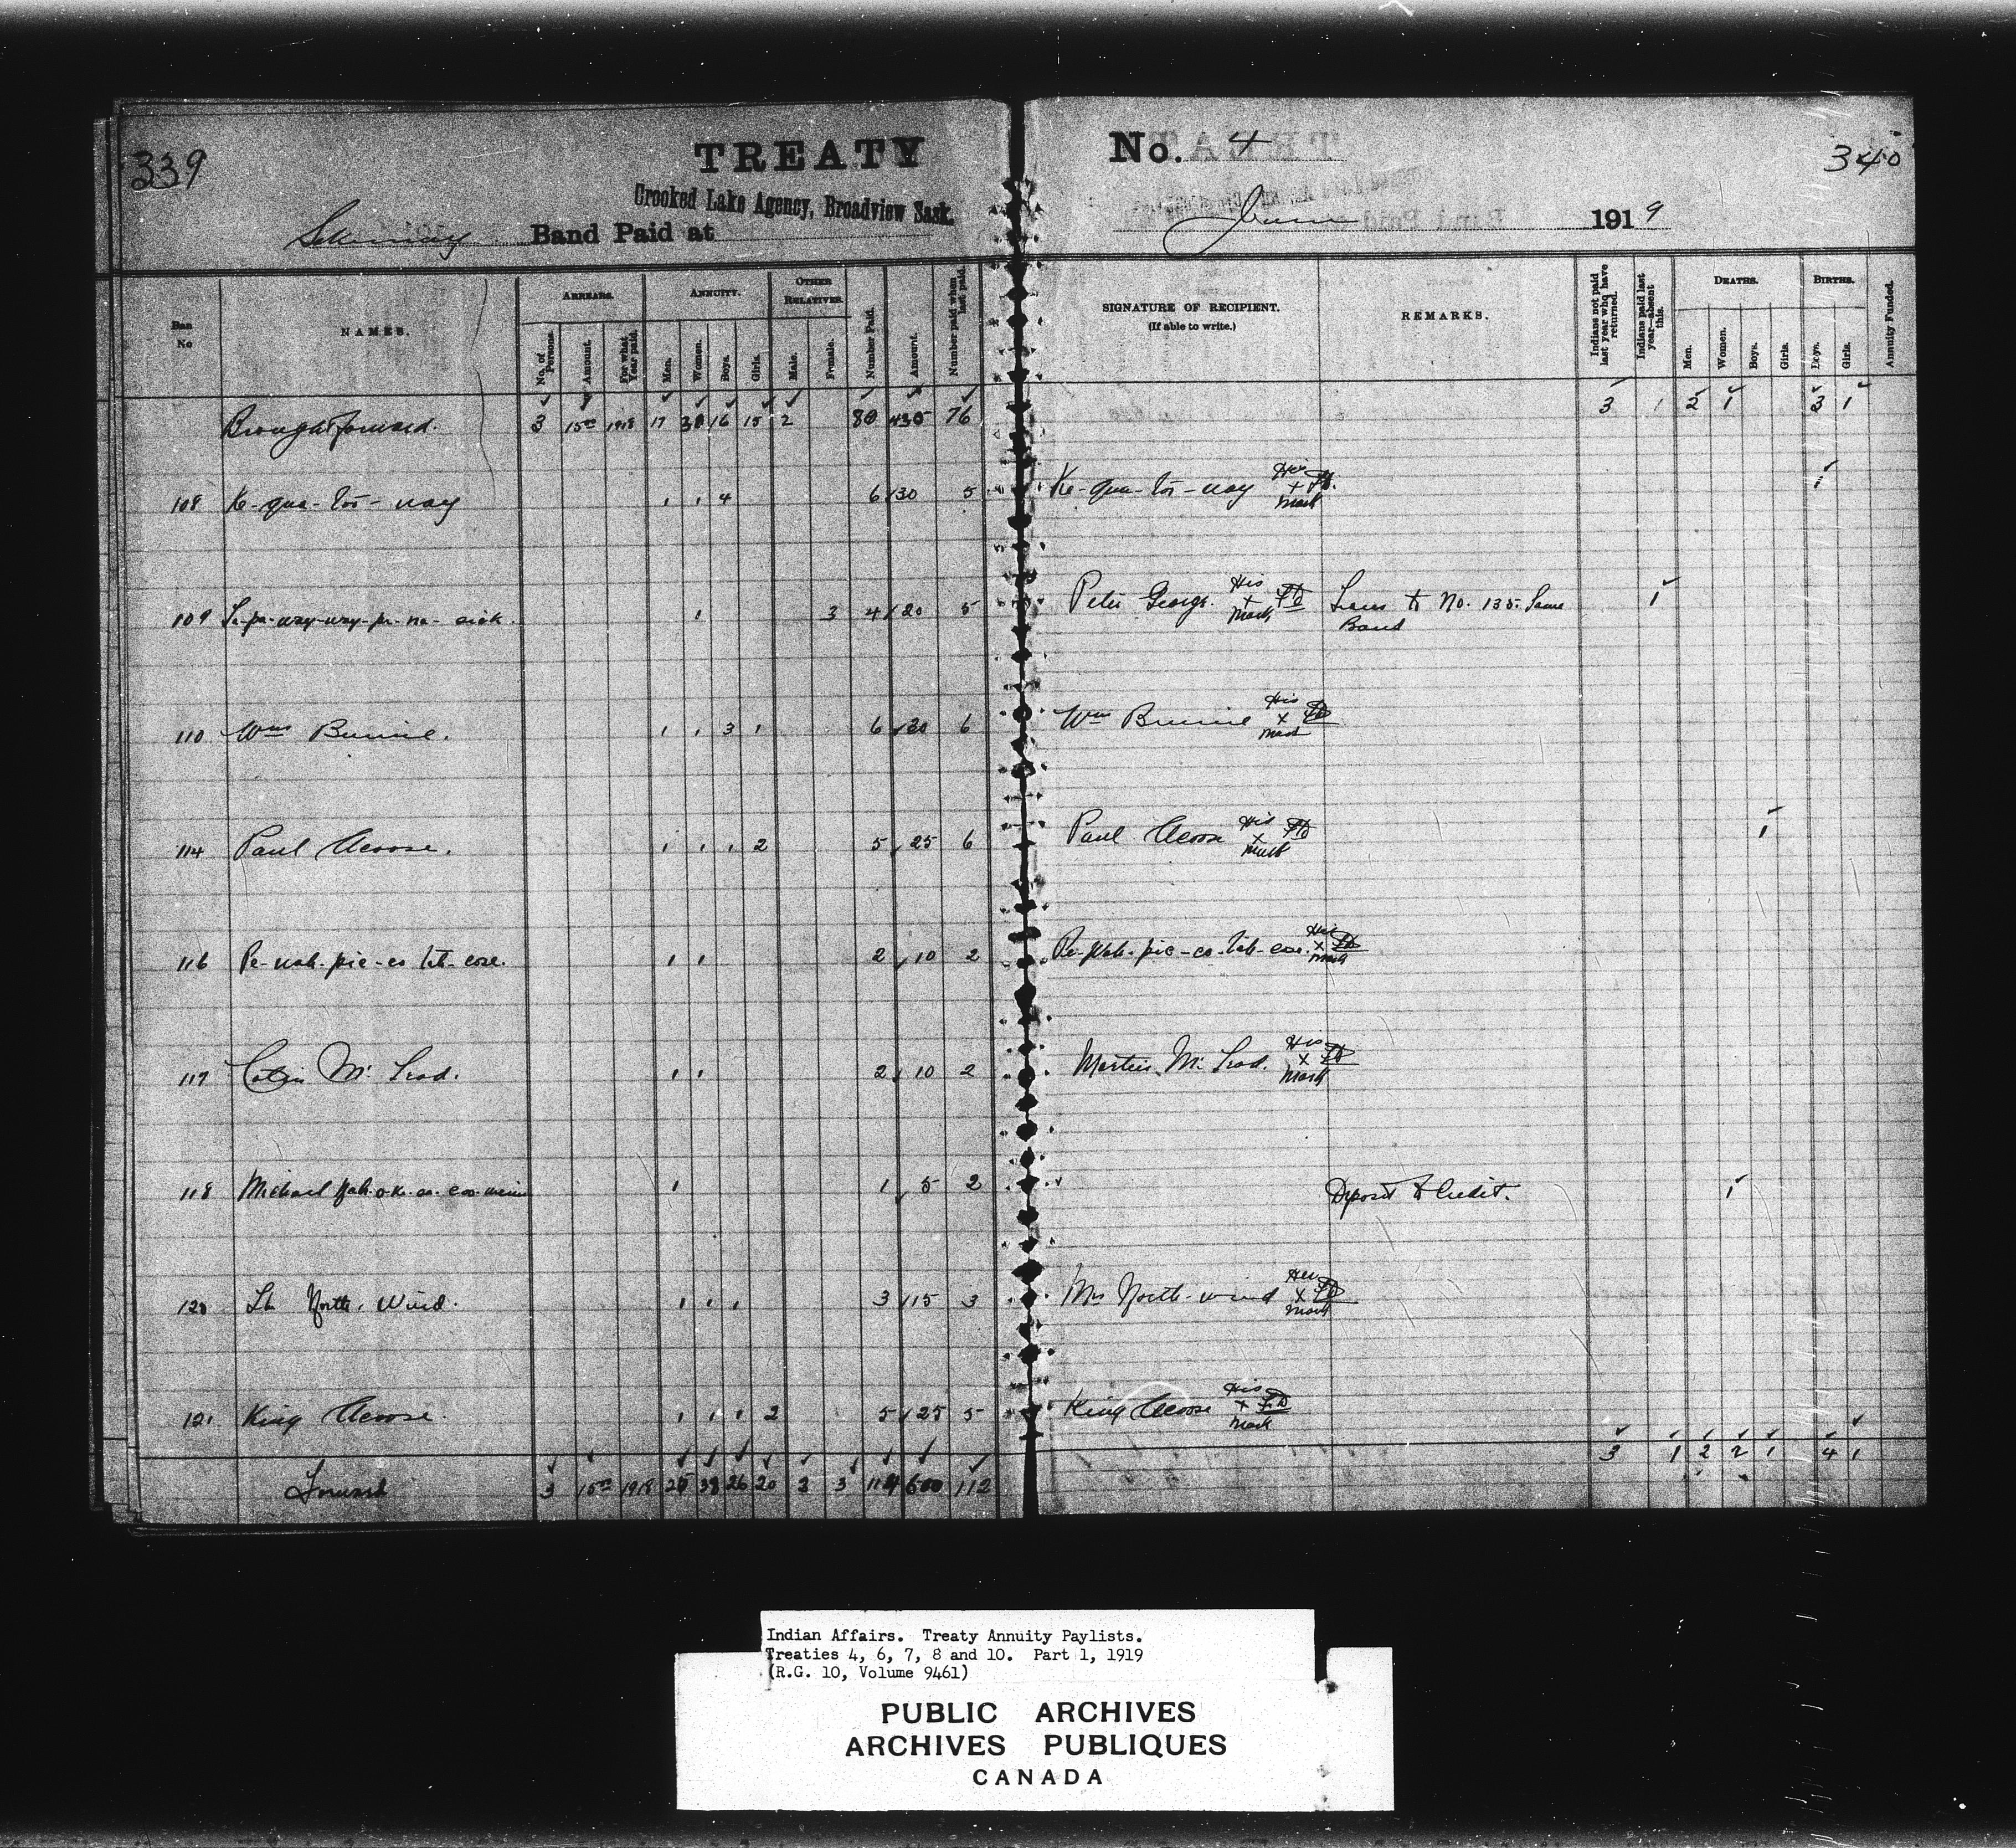 339
TREATY
No. 4
340
Crooked Lake Agency, Broadview Sask.
Band Paid at
June 1919
Ban No
NAMES.
ARREARS.
No. of Persons.
Amount.
For what Year paid.
ANNUITY.
Men.
Women.
Boys.
Girls.
OTHER RELATIVES.
Male.
Female.
Number Paid.
Amount.
Number paid when last paid.
SIGNATURE OF RECIPIENT.
(If able to write.)
REMARKS.
Indians not paid last year who have returned.
Indians paid last year—absent this.
DEATHS.
Men.
Women.
Boys.
Girls.
BIRTHS.
Boys.
Girls.
Annuity Funded.
Brought forward. 3 15 1918 17 30 16 15 2 80 76 3 1 2 1 3 1
108 Ke-qua-tos-way 1 1 4 6 30 5 Ke-qua-tos-way His x Mark 1
109 1 3 4 20 5 Peter George His x Mark Trans to No. 135 Same Band 1
110 Wm 1 1 3 1 6 30 6 Wm His x Mark
114 Paul Acoose. 1 1 1 2 5 25 6 Paul Acoose His x Mark 1
116 1 1 2 10 2 His x Mark
117 Colin Mc Leod. 1 1 2 10 2 Martin Mc Leod. His x Mark
118 Michael 1 1 5 2 Deposit to Credit. 1
120 North Wind. 1 1 1 3 15 3 Mrs North-wind Her x Mark
121 King Acoose. 1 1 1 2 5 25 5 King Acoose His x Mark
Forward 3 15 1918 25 38 26 20 2 3 114 600 112 3 1 2 2 1 4 1
Indian Affairs. Treaty Annuity Paylists.
Treaties 4, 6, 7, 8 and 10. Part 1, 1919
(R.G. 10, Volume 9461)
PUBLIC ARCHIVES
ARCHIVES PUBLIQUES
CANADA